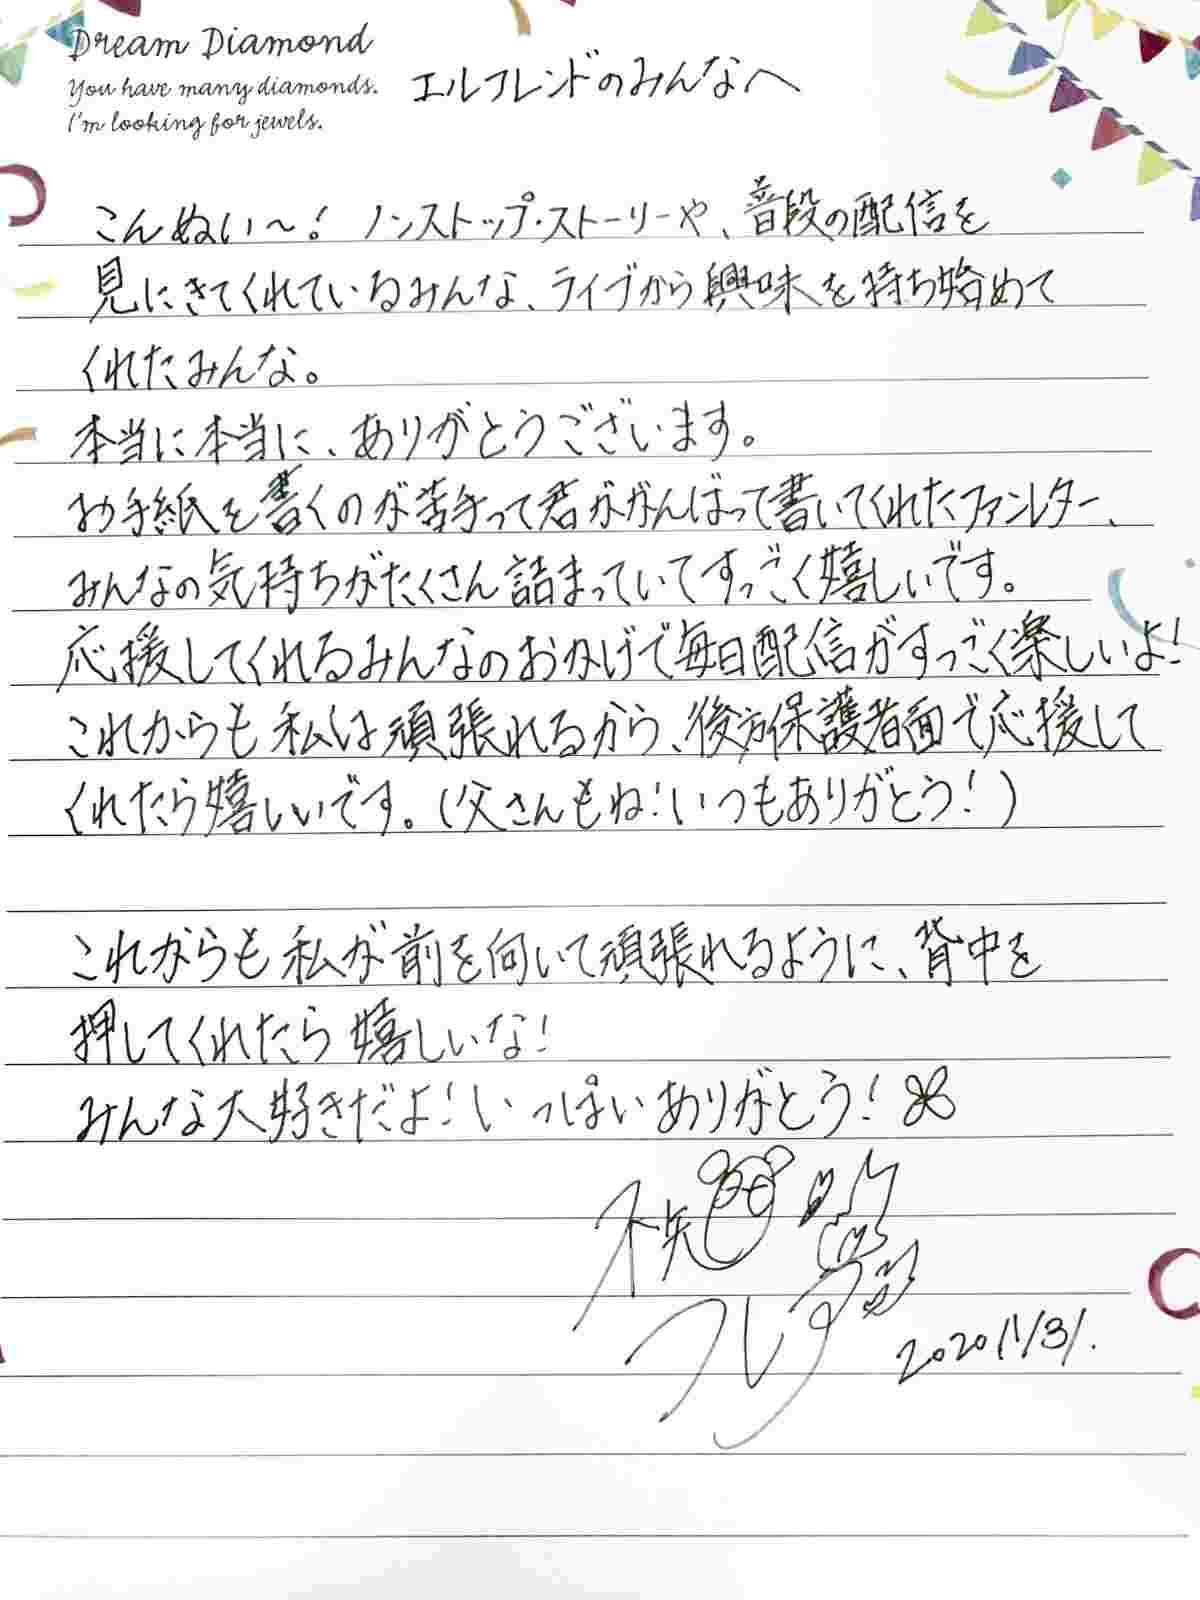 Dream Diamond
You have many diamonds.
I'm looking for jewels.
エルフレンドのみんなへ
こんぬい〜! ノンストップ・ストーリーや、普段の配信を
見にきてくれているみんな、ライブから興味を持ち始めて
くれたみんな。
本当に本当に、ありがとうございます。
お手紙を書くのが苦手って君ががんばって書いてくれたファンレター、
みんなの気持ちがたくさん詰まっていてすっごく嬉しいです。
応援してくれるみんなのおかげで毎日配信がすっごく楽しいよ!
これからも私は頑張れるから、後方保護者面で応援して
くれたら嬉しいです。(父さんもね!いつもありがとう!)
これからも私が前を向いて頑張れるように、背中を
押してくれたら嬉しいな!
みんな大好きだよ!いっぱいありがとう!
2020/1/31.